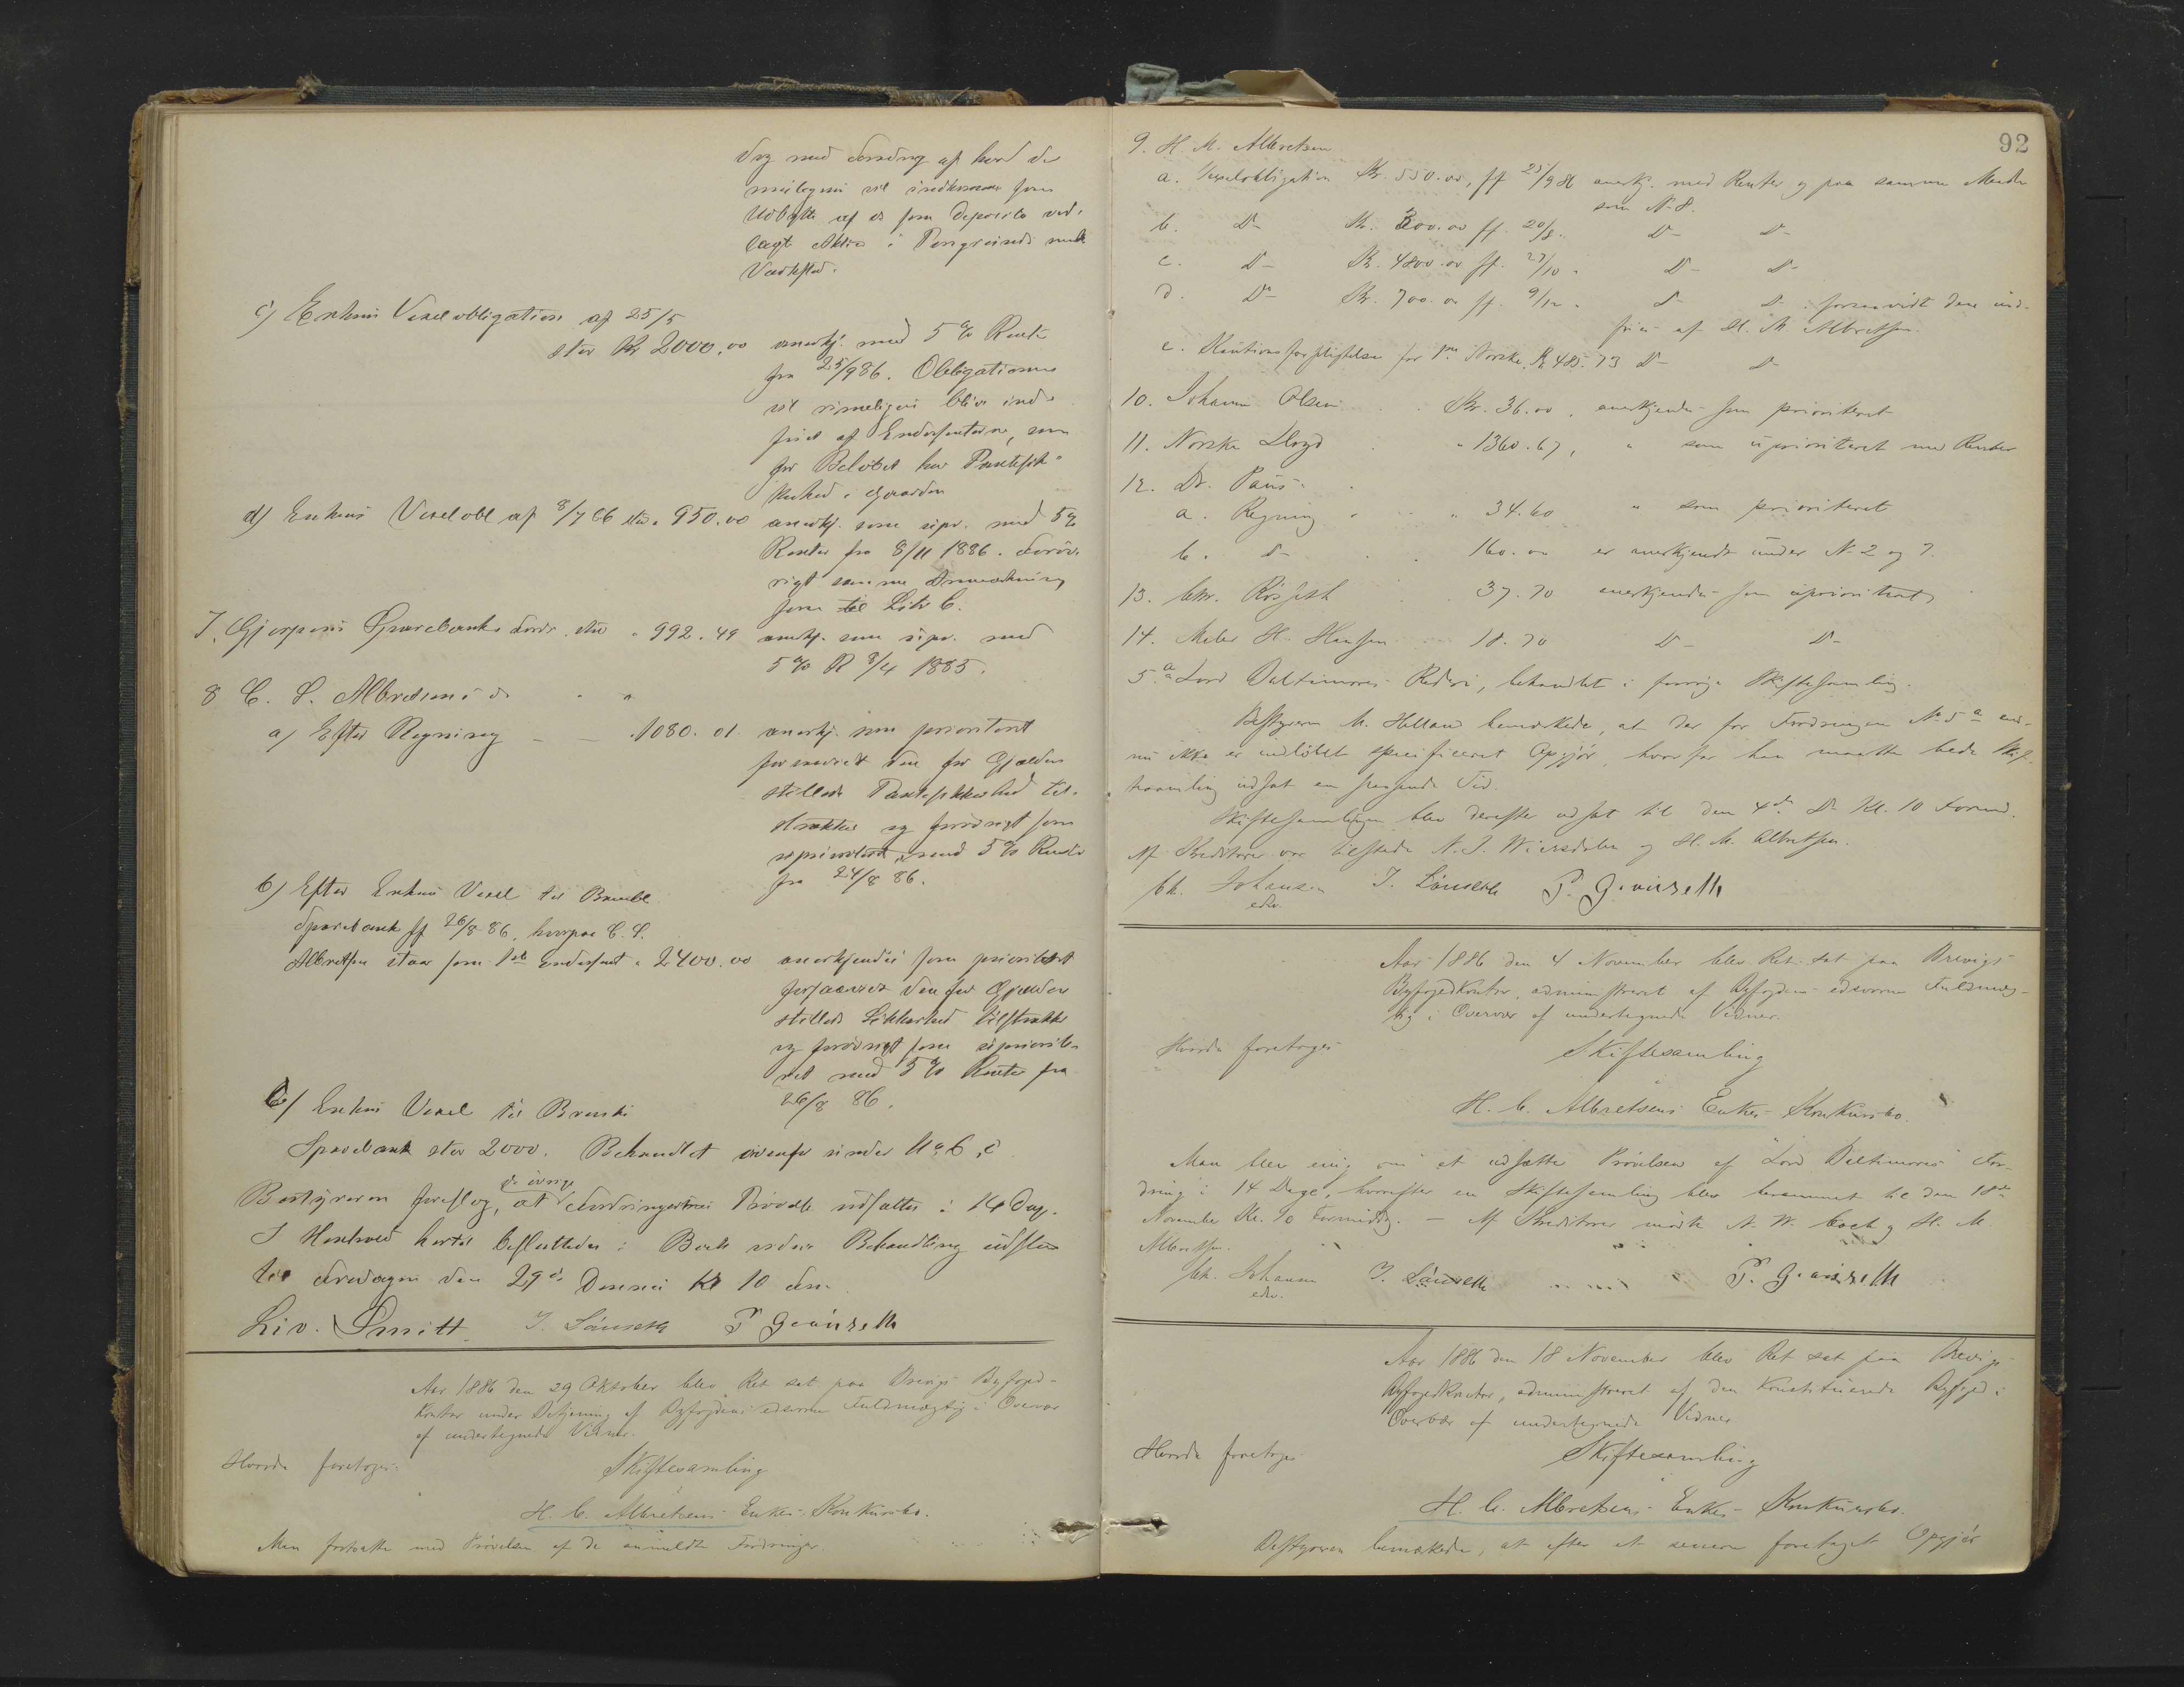 Dog med Fradrag af hvad der
muligens vil indkomme som
Udbytte af de som Deposito ved-
lagte Aktier i Porsgrunds mek
Værksted.
c) Enkens Vexelobligation af 25/5
stor Kr 2000.00 anerkj. med 5 % Rente
fra 25/9 86. Obligationen
vil rimeligvis blive ind-
friet af Endossenterne, som
for Beløbet har Pantesik-
kerhed i Gaarden
d) Enkens Vexelobl af 8/7 86 stor " 950.00 anerkj. som upr. med 5 %
Renter fra 8/11 1886. Forøv-
rigt samme Anmærkning
som til Litr C.
7. Gjerpens Sparebanks Fordr. stor " 992.49 anerkj. som upr. med
5 % R 8/4 1885.
8 C. S. Albretsens do " "
a) Efter Regning — — " 1080.01 anerkj. som prioriteret
forsaavidt den for Gjælden
stillede Pantesikkerhed til-
strækker og forøvrigt som
uprioriteret, med 5 % Rente
fra 24/8 86.
b) Efter Enkens Vexel til Bamble
Sparebank ff 26/8 86, hvorpaa C. S.
Albretsen staar som 1ste Endossent " 2400.00 anerkjendes som prioriteret
forsaavidt den for Gjælden
stillede Sikkerhed tilstrækker
og forøvrigt som upriorite-
ret med 5 % Rente fra
26/8 86.
c) Enkens Vexel til Bamble
Sparebank stor 2000. Behandlet ovenfor under No 6, c
Bestyreren foreslog, at de øvrige Fordringers Prøvelse udsættes i 14 Dage.
I Henhold hertil besluttedes: Boets videre Behandling udsættes
til Fredagen den 29de Dennes Kl 10 Fm.
Liv. Smitt. J. Lönseth P Grönseth
Aar 1886 den 29 Oktober blev Ret sat paa Brevigs Byfoged-
kontor under Betjening af Byfogdens edsvorne Fuldmægtig i Overvær
af undertegnede Vidner.
Hvorda foretoges:
Skiftesamling
i
H. C. Albretsens Enkes Konkursbo.
Man fortsatte med Prøvelsen af de anmeldte Fordringer.
92
9. H. M. Albretsen
a. Vexelobligation Kr. 550.00, ff 25/9 86 anerkj. med Renter og paa samme Maade
som N. 8.
b. Do Kr. 300.00 ff. 20/8. Do Do
c. Do Kr. 4800.00 ff. 27/10. Do Do
d. Do Kr. 700.00 ff. 9/12. Do Do forsaavidt den ind-
fries af H. M Albretsen.
e. Kautionsforpligtelse for Norske Kr 485.73 Do Do
10. Johanne Olsen Kr. 36.00, anerkjendes som prioriteret
11. Norske Lloyd " 1360.67, " som uprioriteret med Renter
12. Dr. Paus.
a. Regning " 34.60 " som prioriteret
b. Do 160.00 er anerkjendt under N. 2 og 7.
13. Chr. Kösseth 37.70 anerkjendes som uprioriteret
14. Maler H. Hansen 18.70 Do Do
5.a Lord Baltimores Rederi, behandlet i forrige Skiftesamling.
Bestyreren M. Helland bemærkede, at der for Fordringen No 5a end-
nu ikke er indløbet specificeret Opgjør, hvorfor han maatte bede Skif-
tesamling udsat en passende Tid.
Skiftesamlingen blev derefter udsat til den 4de Ds Kl. 10 Formd.
Af Kreditorer var tilstede N. J. Wiersdalen og H. M. Albretsen.
Chr. Johansen J. Lönseth P. Grönseth
edsv.
Aar 1886 den 4 November blev Ret sat paa Brevigs
Byfogedkontor, administreret af Byfogdens edsvorne Fuldmæg-
tig i Overvær af undertegnede Vidner.
Hvorda foretoges
Skiftesamling
i
H. C. Albretsens Enkes Konkursbo.
Man blev enig om at udsætte Prøvelsen af "Lord Baltimores" For-
dring i 14 Dage, hvorefter en Skiftesamling blev berammet til den 18de
November Kl. 10 Formiddg. — Af Kreditorer mødte N. W. Coch og H. M.
Albretsen.
Chr. Johansen J. Lönseth P. Grönseth
edsv.
Aar 1886 den 18 November blev Ret sat paa Brevigs
Byfogedkontor, administreret af den konstituerede Byfoged i
Overvær af undertegnede Vidner
Hvorda foretoges
Skiftesamling
i
H. C. Albretsens Enkes Konkursbo.
Bestyreren bemærkede, at efter et senere foretaget Opgjør